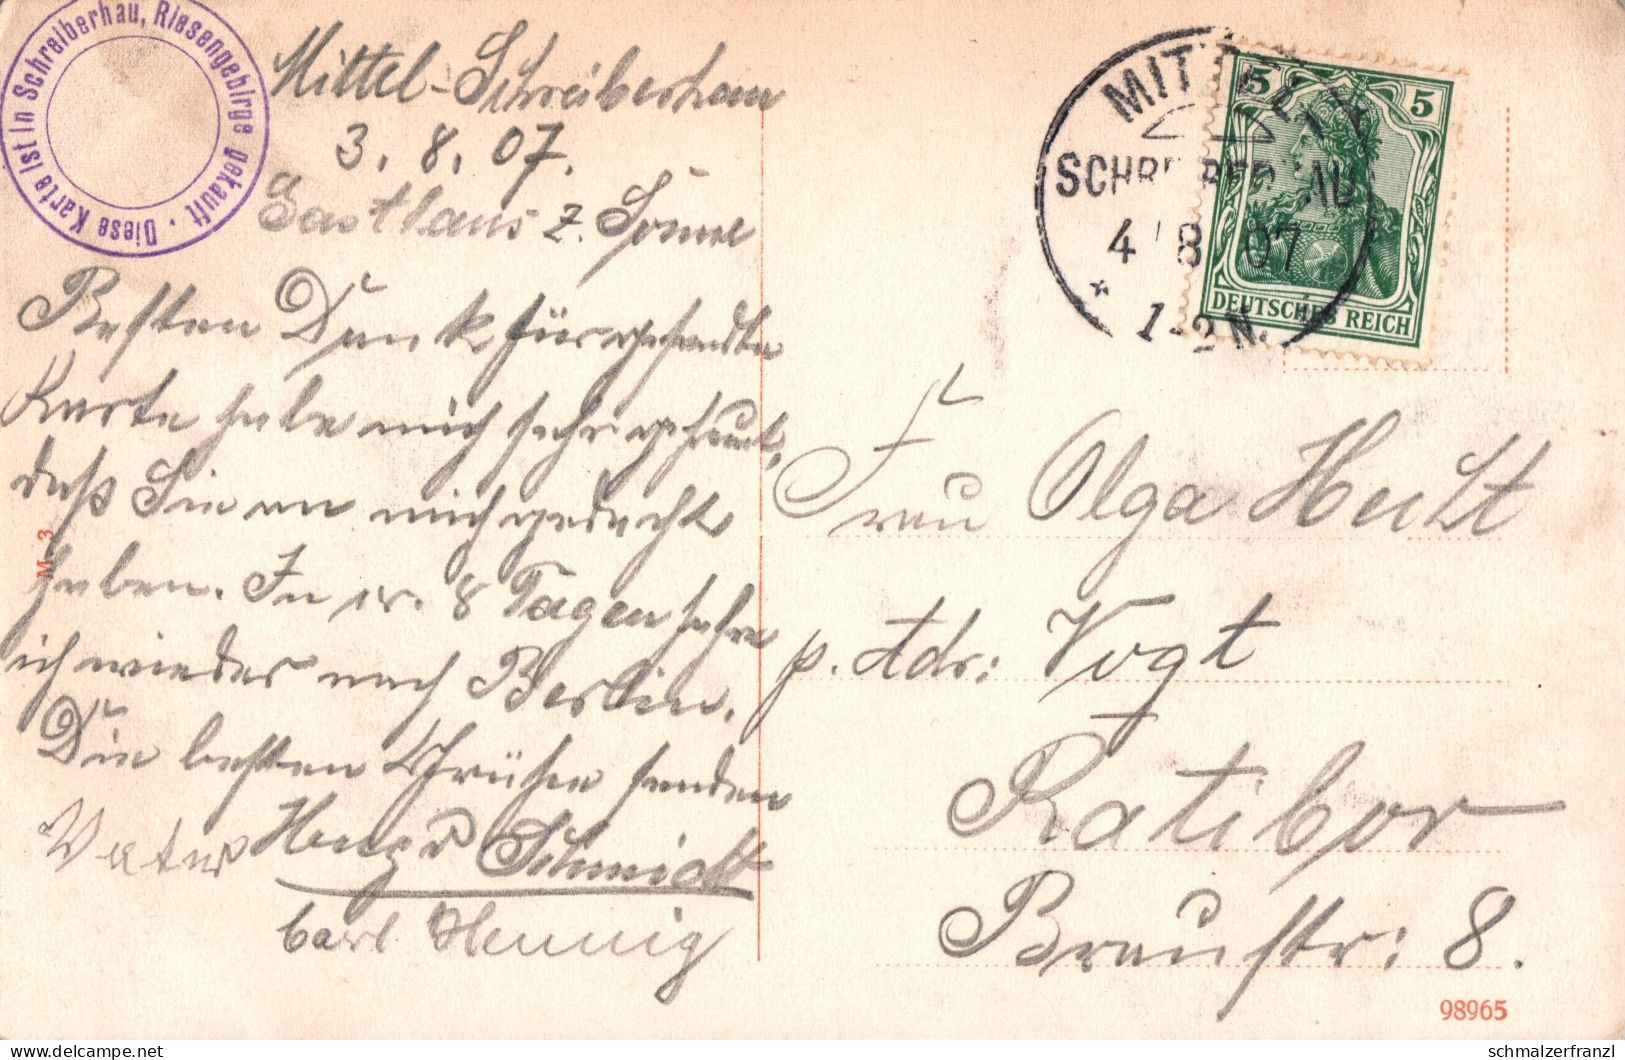 Diese Karte ist in Schreiberhau, Riesengebirge gekauft.
Mittel-Schreiberhau
3. 8. 07.
Gasthaus z. Sonne
Besten Dank für gesandte
Karte habe mich sehr gefreut,
daß Sie an mich gedacht
haben. In 8 Tagen fahre
ich wieder nach Berlin.
Die besten Grüße senden
Schmidt
Carl Hennig
M 3
MITTEL
SCHREIBERHAU
4 8 07
1-2 N.
5 5
DEUTSCHES REICH
Frau Olga Hecht
p. Adr: Vogt
Ratibor
Braustr: 8.
98965
© www.delcampe.net
schmalzerfranzl